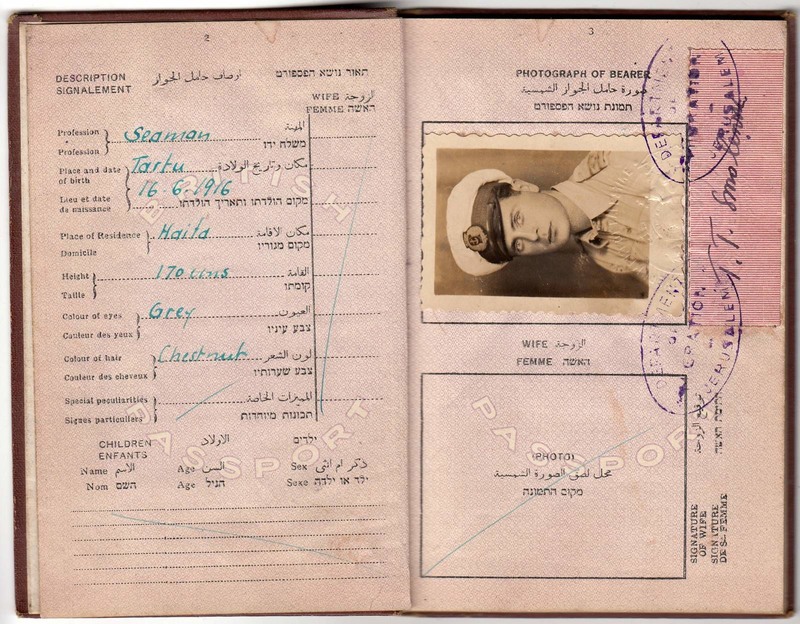 2
DESCRIPTION
SIGNALEMENT
اوصاف حامل الجواز
תאור נושא הפספורט
WIFE الزوجة
FEMME האשה
Profession Seaman المهنة
Profession משלח ידו
Place and date of birth Tartu مكان وتاريخ الولادة
16.6.1916
Lieu et date de naissance מקום הולדתו ותאריך הולדתו
Place of Residence Haifa مكان الاقامة
Domicile מקום מגוריו
Height 170 cms القامة
Taille קומתו
Colour of eyes Grey العيون
Couleur des yeux צבע עיניו
Colour of hair Chestnut لون الشعر
Couleur des cheveux צבע שערותיו
Special peculiarities المميزات الخاصة
Signes particuliers תכונות מיוחדות
CHILDREN الاولاد ילדים
ENFANTS
Name الاسم Age السن Sex ذكر ام انثى
Nom השם Age הגיל Sexe ילד או ילדה
BRITISH
PASSPORT
3
PHOTOGRAPH OF BEARER
صورة حامل الجواز الشمسية
תמונת נושא הפספורט
WIFE الزوجة
FEMME האשה
(PHOTO)
محل لصق الصورة الشمسية
מקום התמונה
PASSPORT
SIGNATURE
OF WIFE
SIGNATURE
DE SA FEMME
توقيع الزوجة
חתימת האשה
DEPARTMENT
OF
JERUSALEM
DEPARTMENT
OF
JERUSALEM